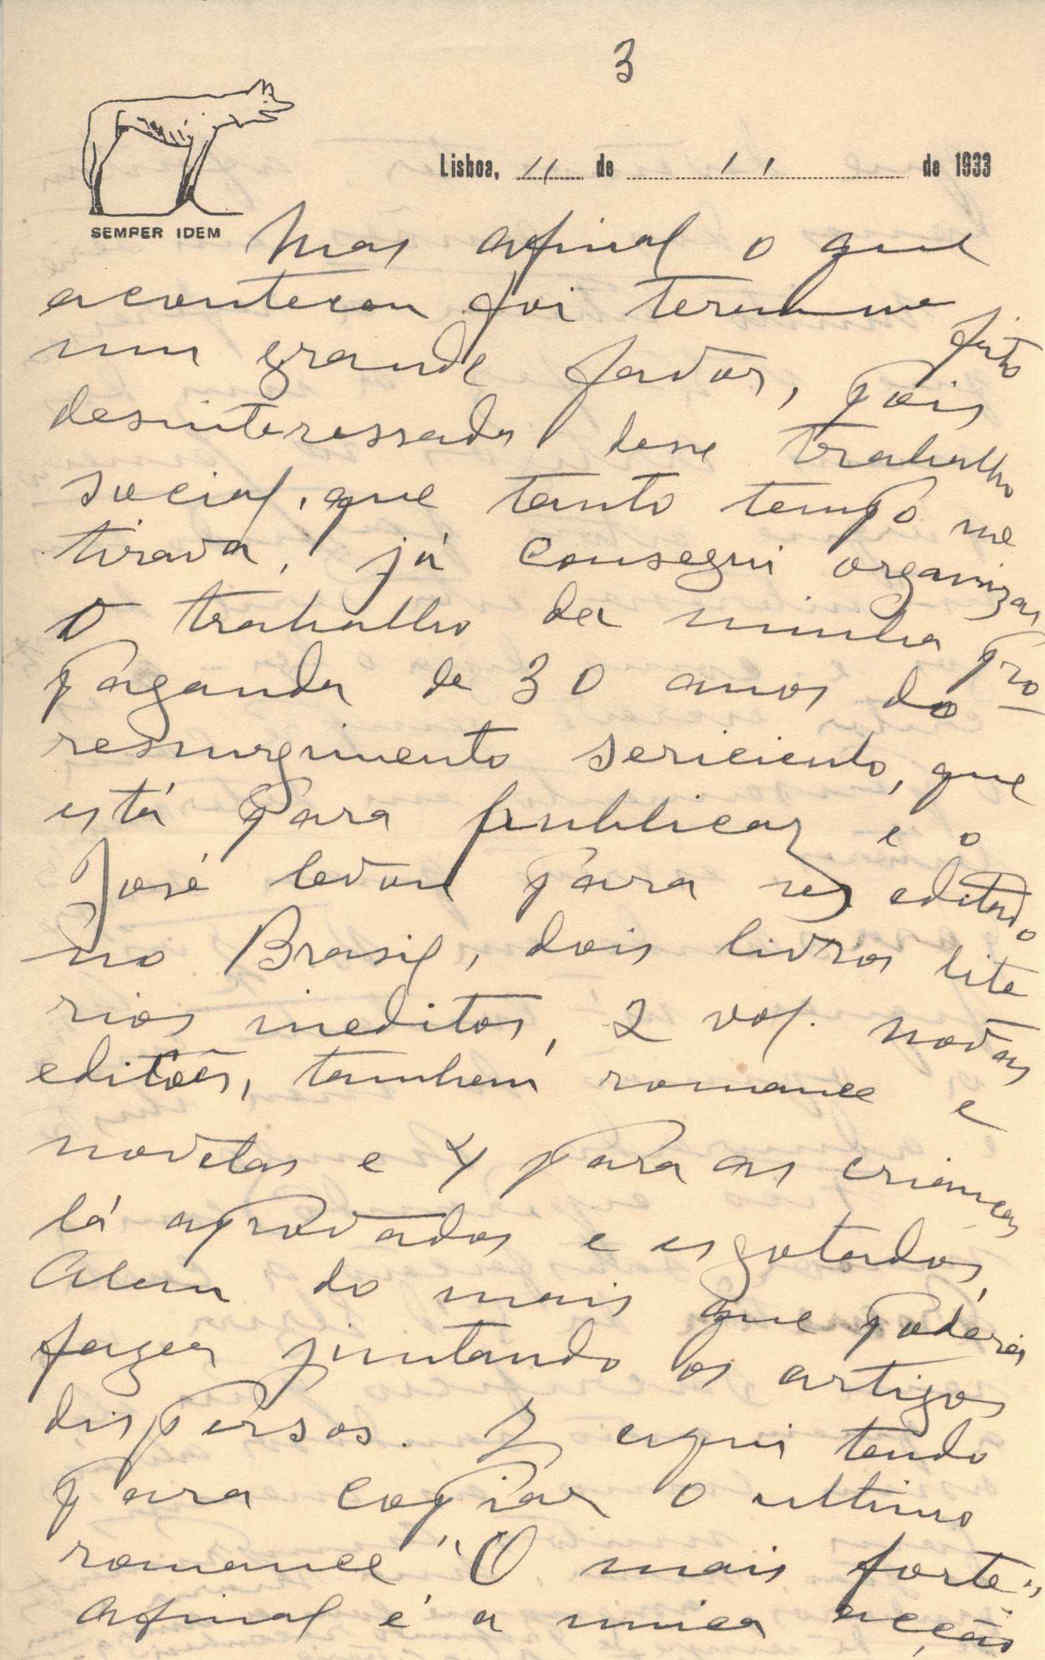 3
Lisboa, 11 de 11 de 1933
SEMPER IDEM
Mas afinal o que
aconteceu foi terem-me feito
um grande favor, pois
desinteressada desse trabalho
social, que tanto tempo me
tirava, já consegui organizar
o trabalho da minha pro-
paganda de 30 anos do
resurgimento sericicolo, que
está para publicar e o
José levou para ser editado
no Brasil, dois livros lite
rios ineditos, 2 vol. novas
edições, tambem romance e
novelas e 4 para as crianças
lá aprovados e esgotados,
Alem do mais que poderei
fazer juntando os artigos
dispersos. E aqui tendo
para copiar o ultimo
romance "O mais forte"
Afinal é a unica acção